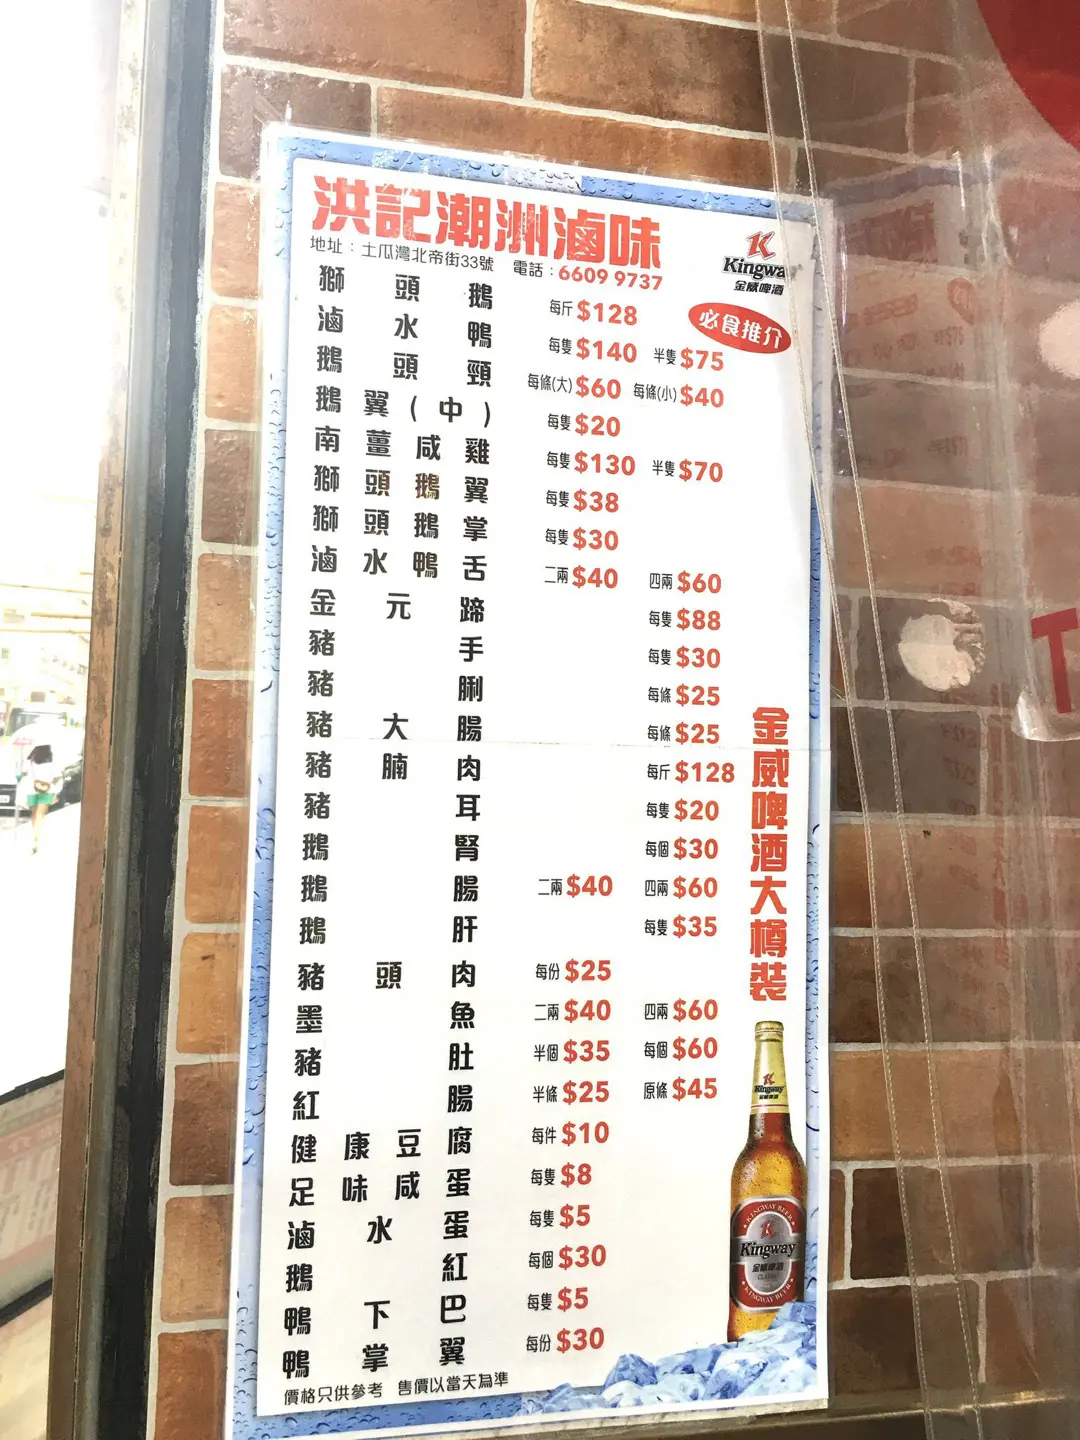 洪記潮洲滷味
地址：土瓜灣北帝街33號 電話：6609 9737
Kingwa
金威啤酒
必食推介
獅頭鵝 每斤$128
滷水鴨 每隻$140 半隻$75
鵝頭頸 每條(大)$60 每條(小)$40
鵝翼(中) 每隻$20
南薑咸雞 每隻$130 半隻$70
獅頭鵝翼 每隻$38
獅頭鵝掌 每隻$30
滷水鴨舌 二兩$40 四兩$60
金元蹄 每隻$88
豬手 每隻$30
豬脷 每條$25
豬大腸 每條$25
豬腩肉 每斤$128
豬耳 每隻$20
鵝腎 每個$30
鵝腸 二兩$40 四兩$60
鵝肝 每隻$35
豬頭肉 每份$25
墨魚 二兩$40 四兩$60
豬肚 半個$35 每個$60
紅腸 半條$25 原條$45
健康豆腐 每件$10
足味咸蛋 每隻$8
滷水蛋 每隻$5
鵝紅 每個$30
鴨下巴 每隻$5
鴨掌翼 每份$30
價格只供參考 售價以當天為準
金威啤酒大樽裝
Kingway
金威啤酒
KINGWAY BEER
Kingway
金威啤酒
CLASSIC
KINGWAY BEER
T